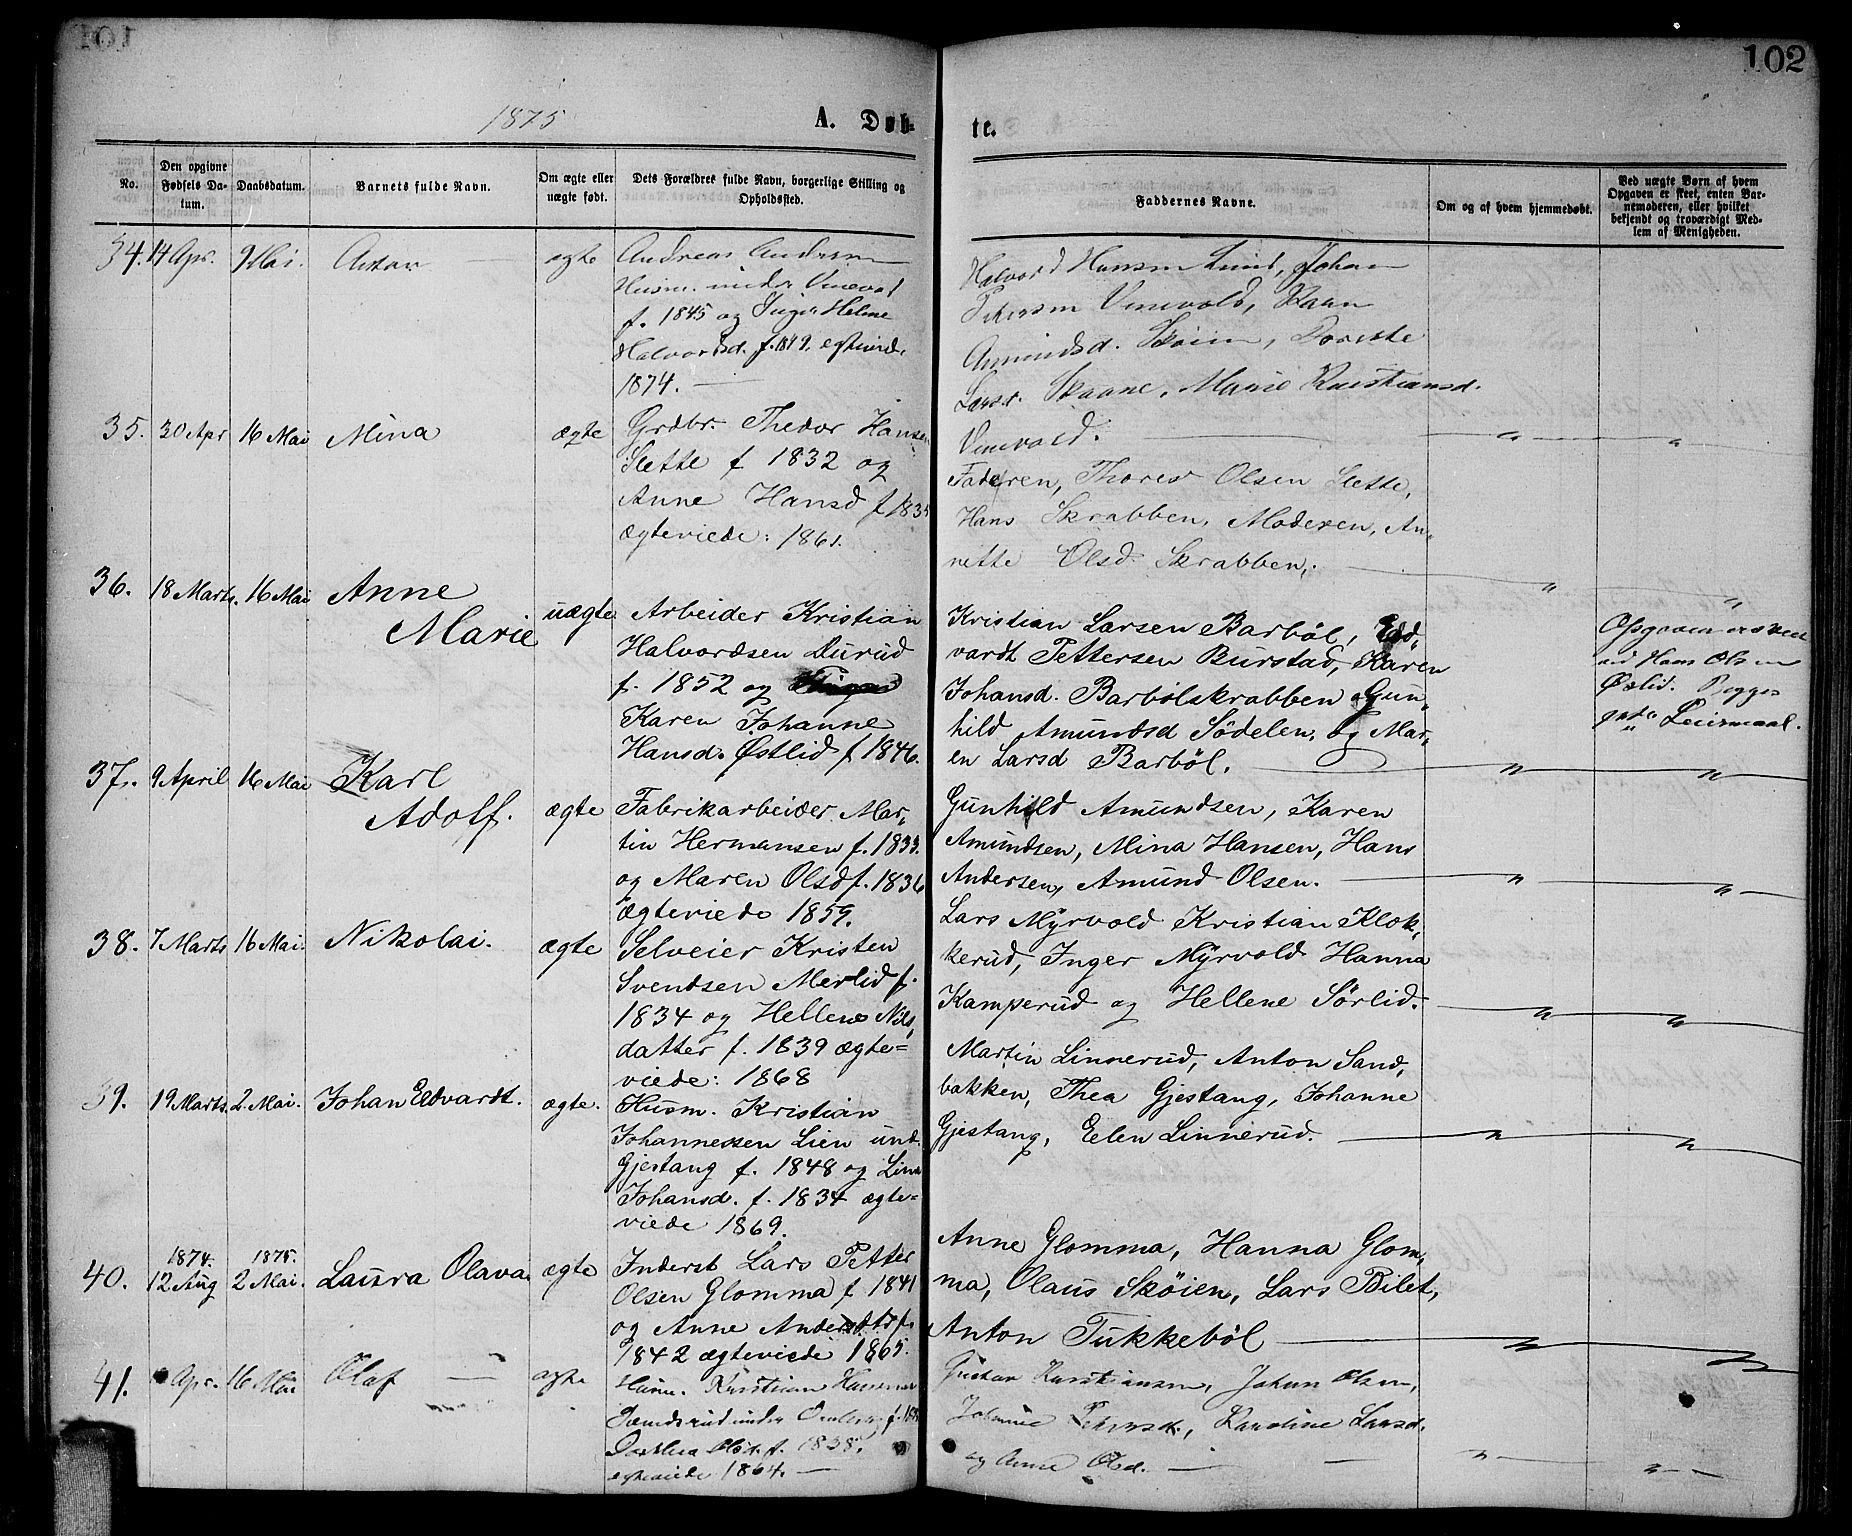 101
102
1875
A. Døb-
te.
No.
Den opgivne
Fødsels Da-
tum.
Daabsdatum.
Barnets fulde Navn.
Om ægte eller
uægte født.
Dets Forældres fulde Navn, borgerlige Stilling og
Opholdssted.
Faddernes Navne.
Om og af hvem hjemmedøbt.
Ved uægte Børn af hvem
Opgaven er skeet, enten Bar-
nemoderen, eller hvilket
bekjendt og troværdigt Med-
lem af Menigheden.
34. 14 Apr. 9 Mai. Anton — ægte
Andreas Andersen
Husm. under Vinevol
f. 1845 og Inger Helene
Halvorsd. f. 1849. egteviede
1874. —
Halvord Hansen Lund, Johan
Petersen Vinevold, Karen
Amundsd. Skøien, Dorette
Larsd. Skaane, Marie Kristiansd.
Vinevold. — " — "
35. 30 Apr 16 Mai Mina ægte
Grdbr. Thedor Hansen
Slette f 1832 og
Anne Hansd f 1835
ægteviede: 1861.
Faderen, Thorer Olsen Slette,
Hans Skrabben, Moderen, An-
nette Olsd Skrabben, — " "
36. 18 Marts. 16 Mai Anne
Marie uægte
Arbeider Kristian
Halvordsen Durud
f. 1852 og
Karen Johanne
Hansd. Østlid f 1846.
Kristian Larsen Barbøl, Ed-
vardt Pettersen Burstad, Karen
Johansd. Barbølskrabben, Gun-
hild Amundsd Sødelen, og Mar-
en Larsd Barbøl. — " — "
Opgaven
ved Hans Olsen
Østlid. Begges
" Leiermaal.
37. 9 April 16 Mai Karl
Adolf. ægte
Fabrikarbeider Mar-
tin Hermansen f. 1833.
og Maren Olsd f. 1836
ægteviede 1859.
Gunhild Amundsen, Karen
Amundsen, Mina Hansen, Hans
Andersen, Amund Olsen. — " — "
38. 7 Marts 16 Mai. Nikolai. ægte
Selveier Kristen
Svendsen Merlid f.
1834 og Hellene Nils-
datter f. 1839 ægte=
viede: 1868
Lars Myrvold Kristian Klok-
kerud, Inger Myrvold Hanna
Kamperud og Hellene Sørlid. — " — "
39. 19 Marts. 2. Mai. Johan Edvardt. ægte.
Husm. Kristian
Johannessen Lien und.
Gjestang f. 1848 og Lina
Johansd. f. 1834 ægte=
viede 1869.
Martin Linnerud, Anton Sand-
bakken, Thea Gjestang, Johanne
Gjestang, Eelen Linnerud. — " — "
1874. 1875.
40. 12 Aug 2 Mai. Laura Olava ægte
Inderst Lars Petter
Olsen Glomma f 1841
og Anne Andersdtr f.
1842 ægteviede 1865.
Anne Glomma, Hanna Glom-
ma, Olaus Skøien, Lars Bilet,
Anton Tukkebøl — " — "
41. Apr. 16 Mai Olaf — ægte
Husm. Kristian Hansen
under f.
Dorthea Olsd. f. 1838.
egteviede 1864. —
Gustav Kristiansen, Johan Olsen,
Johanne Petersd., Karoline Larsd.
og Anne Olsd. — — " — "